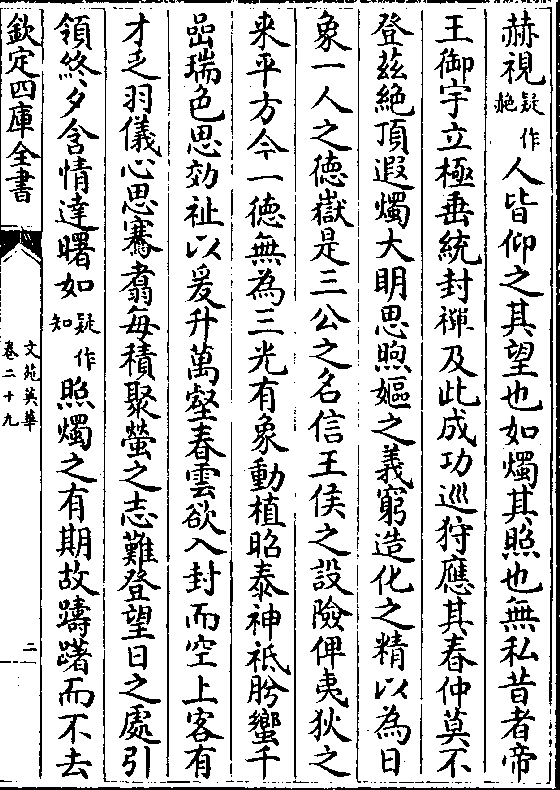 赫視疑作赩人皆仰之其望也如燭其照也無私昔者帝
王御宇立極垂統封禪及此成功巡狩應其春仲莫不
登茲絶頂遐燭大明思煦嫗之義窮造化之精以為日
象一人之德嶽是三公之名信王侯之設險俾夷狄之
来平方今一德無為三光有象動植昭泰神祗肹蠁千
嵒瑞色思効祉以爰升萬壑春雲欲入封而空上客有
才乏羽儀心思騫翥每積聚螢之志難登望日之處引
領終夕含情達曙如疑作知照燭之有期故躊躇而不去
欽定四庫全書
文苑英華
卷二十九
二